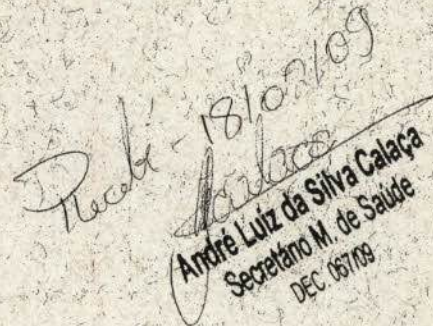 Recebi - 18/02/09
André Luiz da Silva Calaça
Secretário M. de Saúde
DEC 067/09